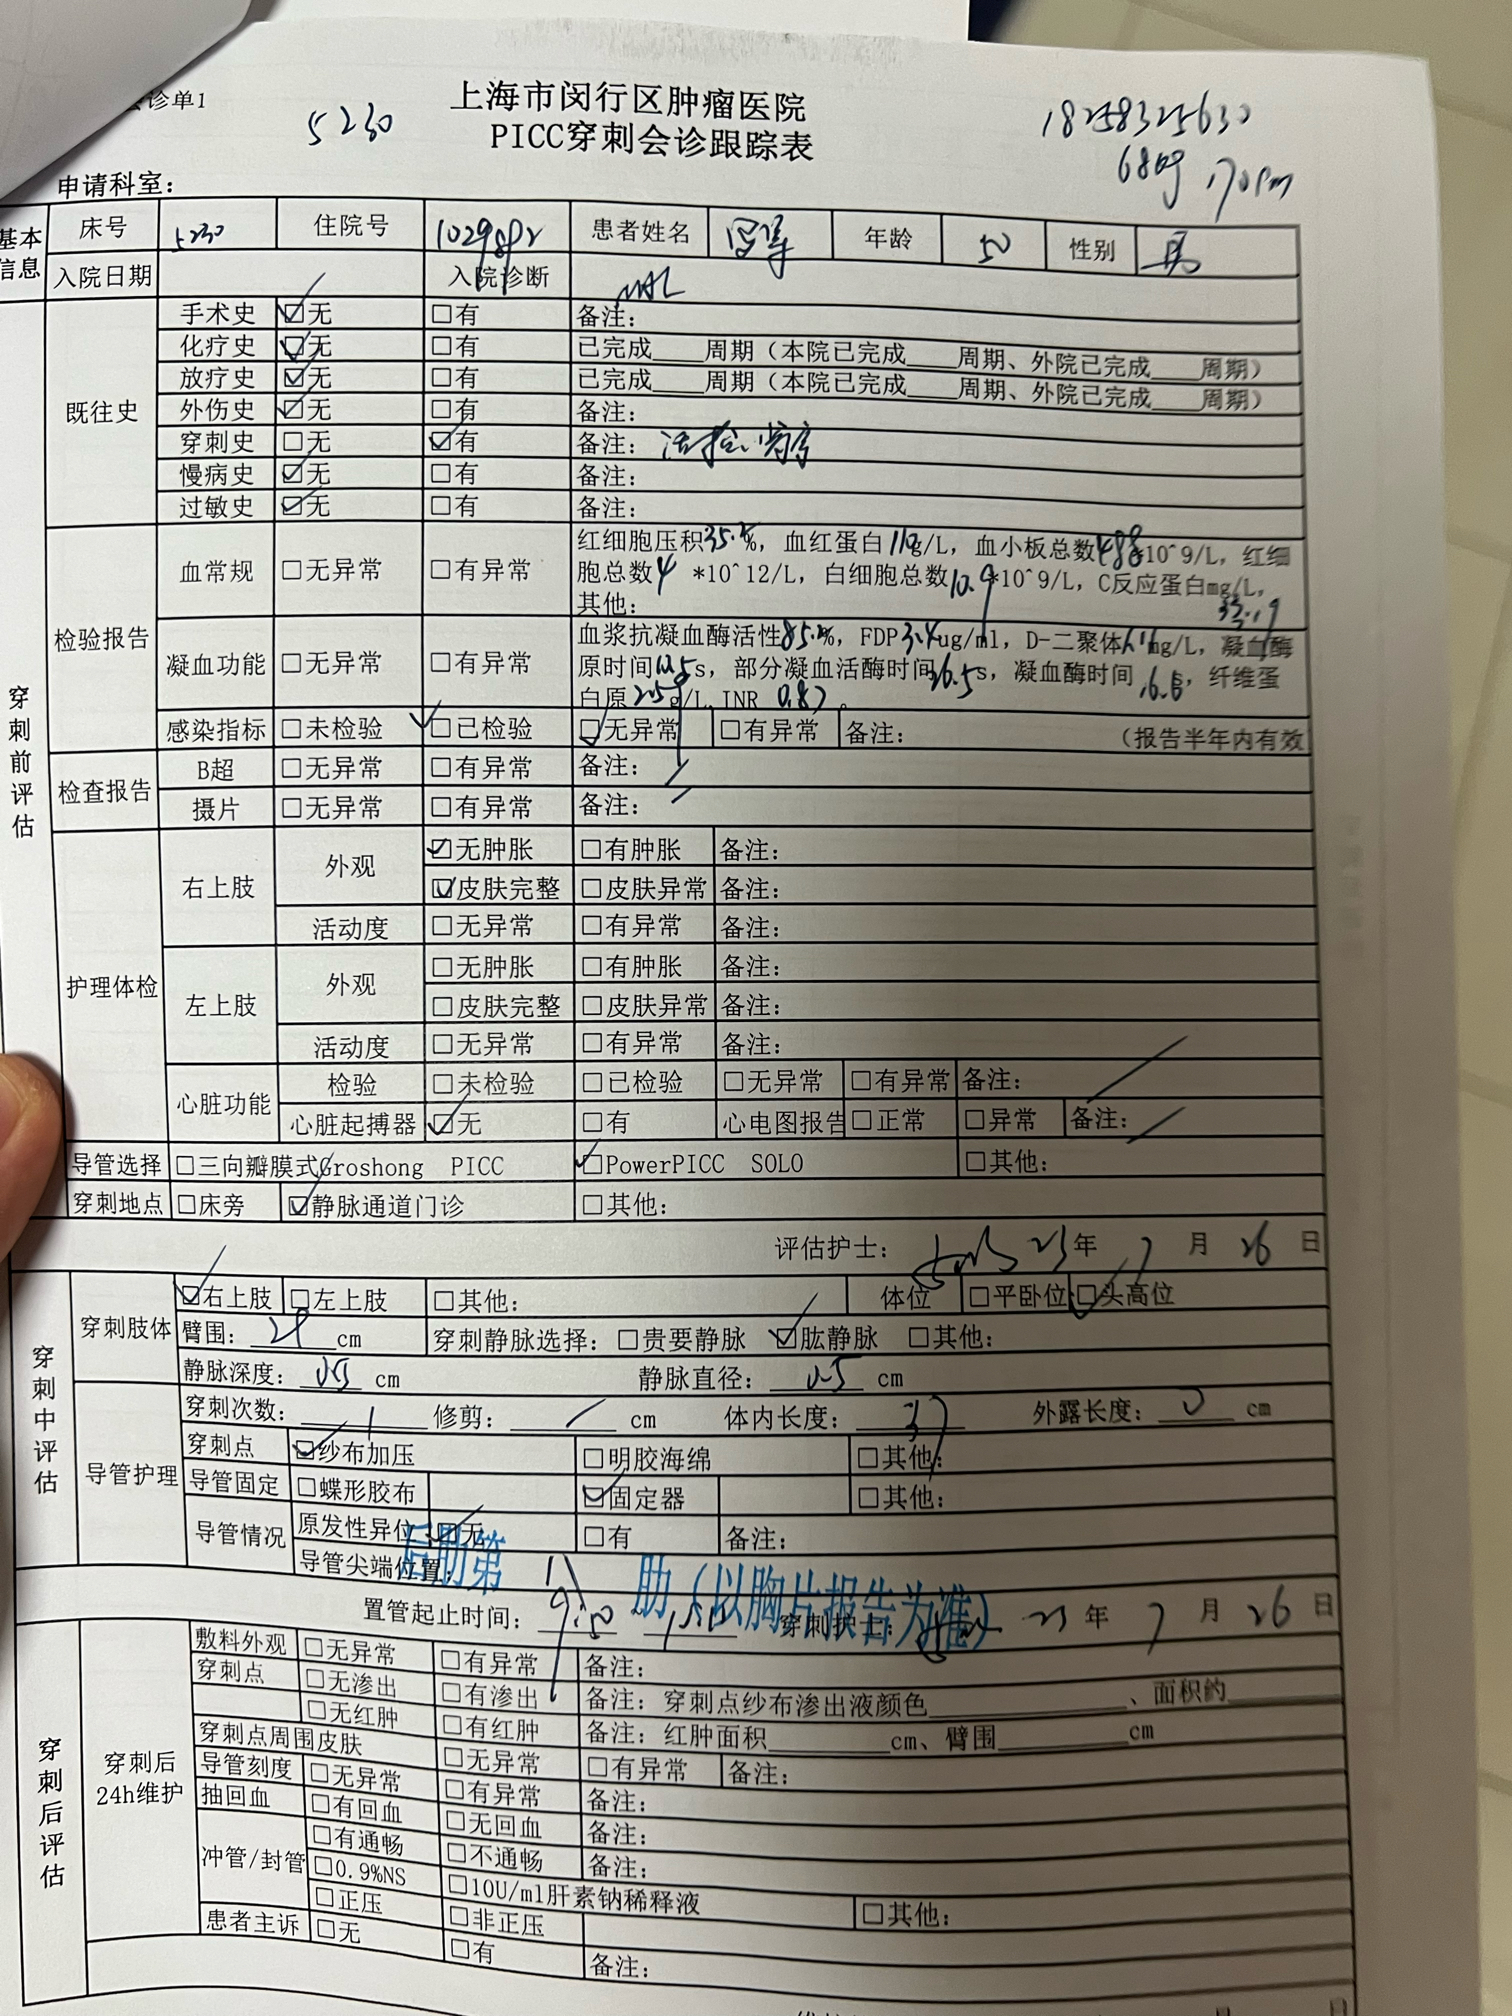 会诊单1
5230
上海市闵行区肿瘤医院
PICC穿刺会诊跟踪表
18258325630
68kg 170cm
申请科室：
基本信息 床号 5230 住院号 患者姓名 年龄 50 性别 男
入院日期 入院诊断
穿刺前评估
既往史 手术史 ☑无 □有 备注：
化疗史 ☑无 □有 已完成____周期（本院已完成____周期、外院已完成____周期）
放疗史 ☑无 □有 已完成____周期（本院已完成____周期、外院已完成____周期）
外伤史 ☑无 □有 备注：
穿刺史 □无 ☑有 备注：活检、
慢病史 ☑无 □有 备注：
过敏史 ☑无 □有 备注：
检验报告 血常规 □无异常 □有异常 红细胞压积35. %，血红蛋白110g/L，血小板总数488*10^9/L，红细
胞总数4 *10^12/L，白细胞总数10.9*10^9/L，C反应蛋白mg/L，
33.19
其他：
凝血功能 □无异常 □有异常 血浆抗凝血酶活性85. %，FDP3.4ug/ml，D-二聚体 mg/L，凝血酶
原时间 s，部分凝血活酶时间26.5s，凝血酶时间 s，纤维蛋
白原 g/L，INR 0.87。
感染指标 □未检验 ☑已检验 ☑无异常 □有异常 备注： （报告半年内有效
检查报告 B超 □无异常 □有异常 备注：/
摄片 □无异常 □有异常 备注：/
护理体检 右上肢 外观 ☑无肿胀 □有肿胀 备注：
☑皮肤完整 □皮肤异常 备注：
活动度 □无异常 □有异常 备注：
左上肢 外观 □无肿胀 □有肿胀 备注：
□皮肤完整 □皮肤异常 备注：
活动度 □无异常 □有异常 备注：
心脏功能 检验 □未检验 □已检验 □无异常 □有异常 备注：/
心脏起搏器 ☑无 □有 心电图报告 □正常 □异常 备注：/
导管选择 □三向瓣膜式Groshong PICC ☑PowerPICC SOLO □其他：
穿刺地点 □床旁 ☑静脉通道门诊 □其他：
评估护士： 23年 7月 26日
穿刺中评估
穿刺肢体 ☑右上肢 □左上肢 □其他： 体位 □平卧位 ☑头高位
臂围：28 cm 穿刺静脉选择：□贵要静脉 ☑肱静脉 □其他：
静脉深度：0.5 cm 静脉直径：0.5 cm
导管护理 穿刺次数：1 修剪：/ cm 体内长度：37 外露长度：0 cm
穿刺点 ☑纱布加压 □明胶海绵 □其他：
导管固定 □蝶形胶布 ☑固定器 □其他：
导管情况 原发性异位 ☑无 □有 备注：
导管尖端位置： 后肋第 肋（以胸片报告为准）
置管起止时间：9:50 穿刺护士： 23年 7月 26日
穿刺后评估
穿刺后24h维护 敷料外观 □无异常 □有异常 备注：
穿刺点 □无渗出 □有渗出 备注：穿刺点纱布渗出液颜色____、面积约____
□无红肿 □有红肿 备注：红肿面积____cm、臂围____cm
穿刺点周围皮肤 □无异常 □有异常 备注：
导管刻度 □无异常 □有异常 备注：
抽回血 □有回血 □无回血 备注：
冲管/封管 □有通畅 □不通畅 备注：
□0.9%NS □10U/ml肝素钠稀释液 □其他：
□正压 □非正压
患者主诉 □无 □有 备注：